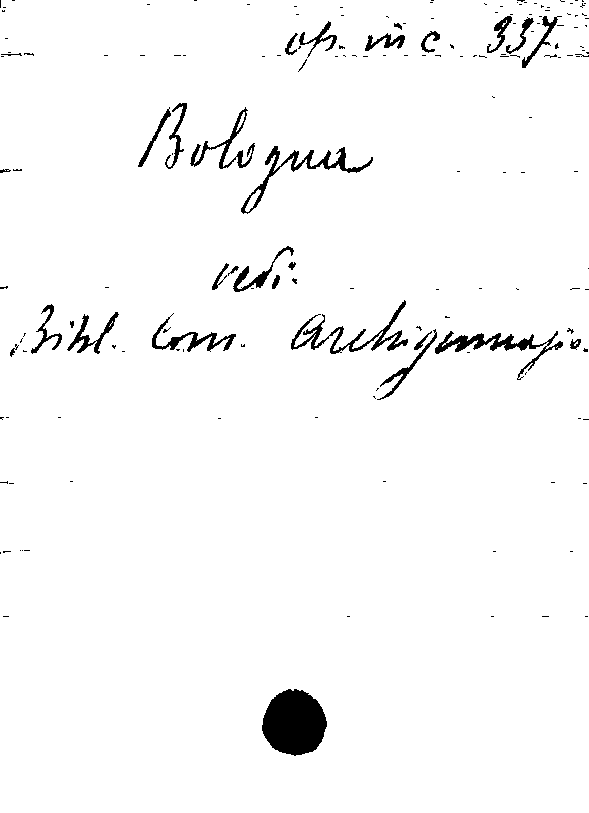 op. in c. 337.
Bologna
vedi:
Bibl. Com. Archiginnasio.